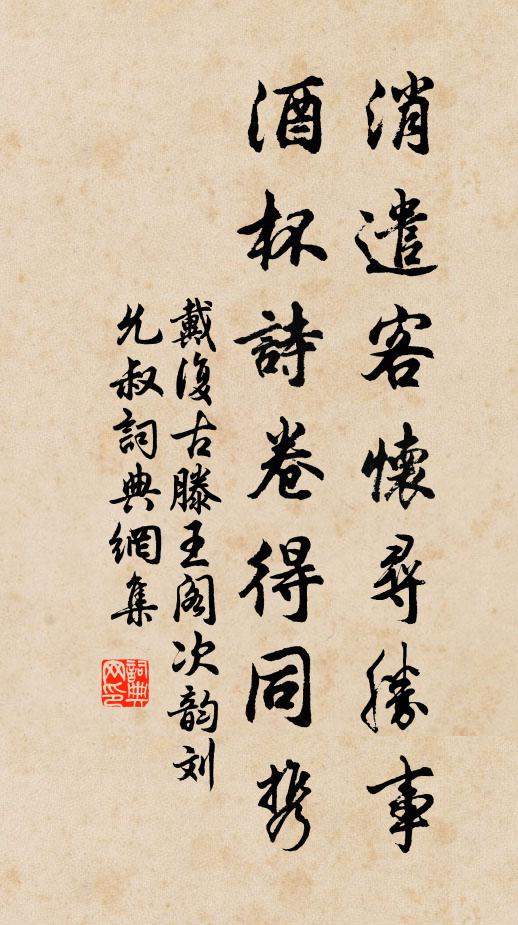 消遣客懷尋勝事
酒杯詩卷得同携
戴復古滕王阁次韵刘
允叔詞典網集
詞典网印